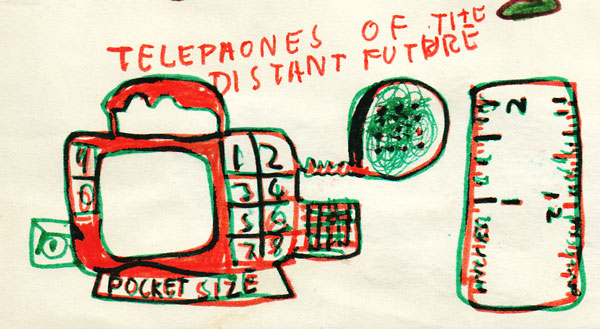 TELEPHONES OF THE
DISTANT FUTURE
9
0
1 2
3 4
5 6
7 8
POCKET SIZE
INCHES 1 2